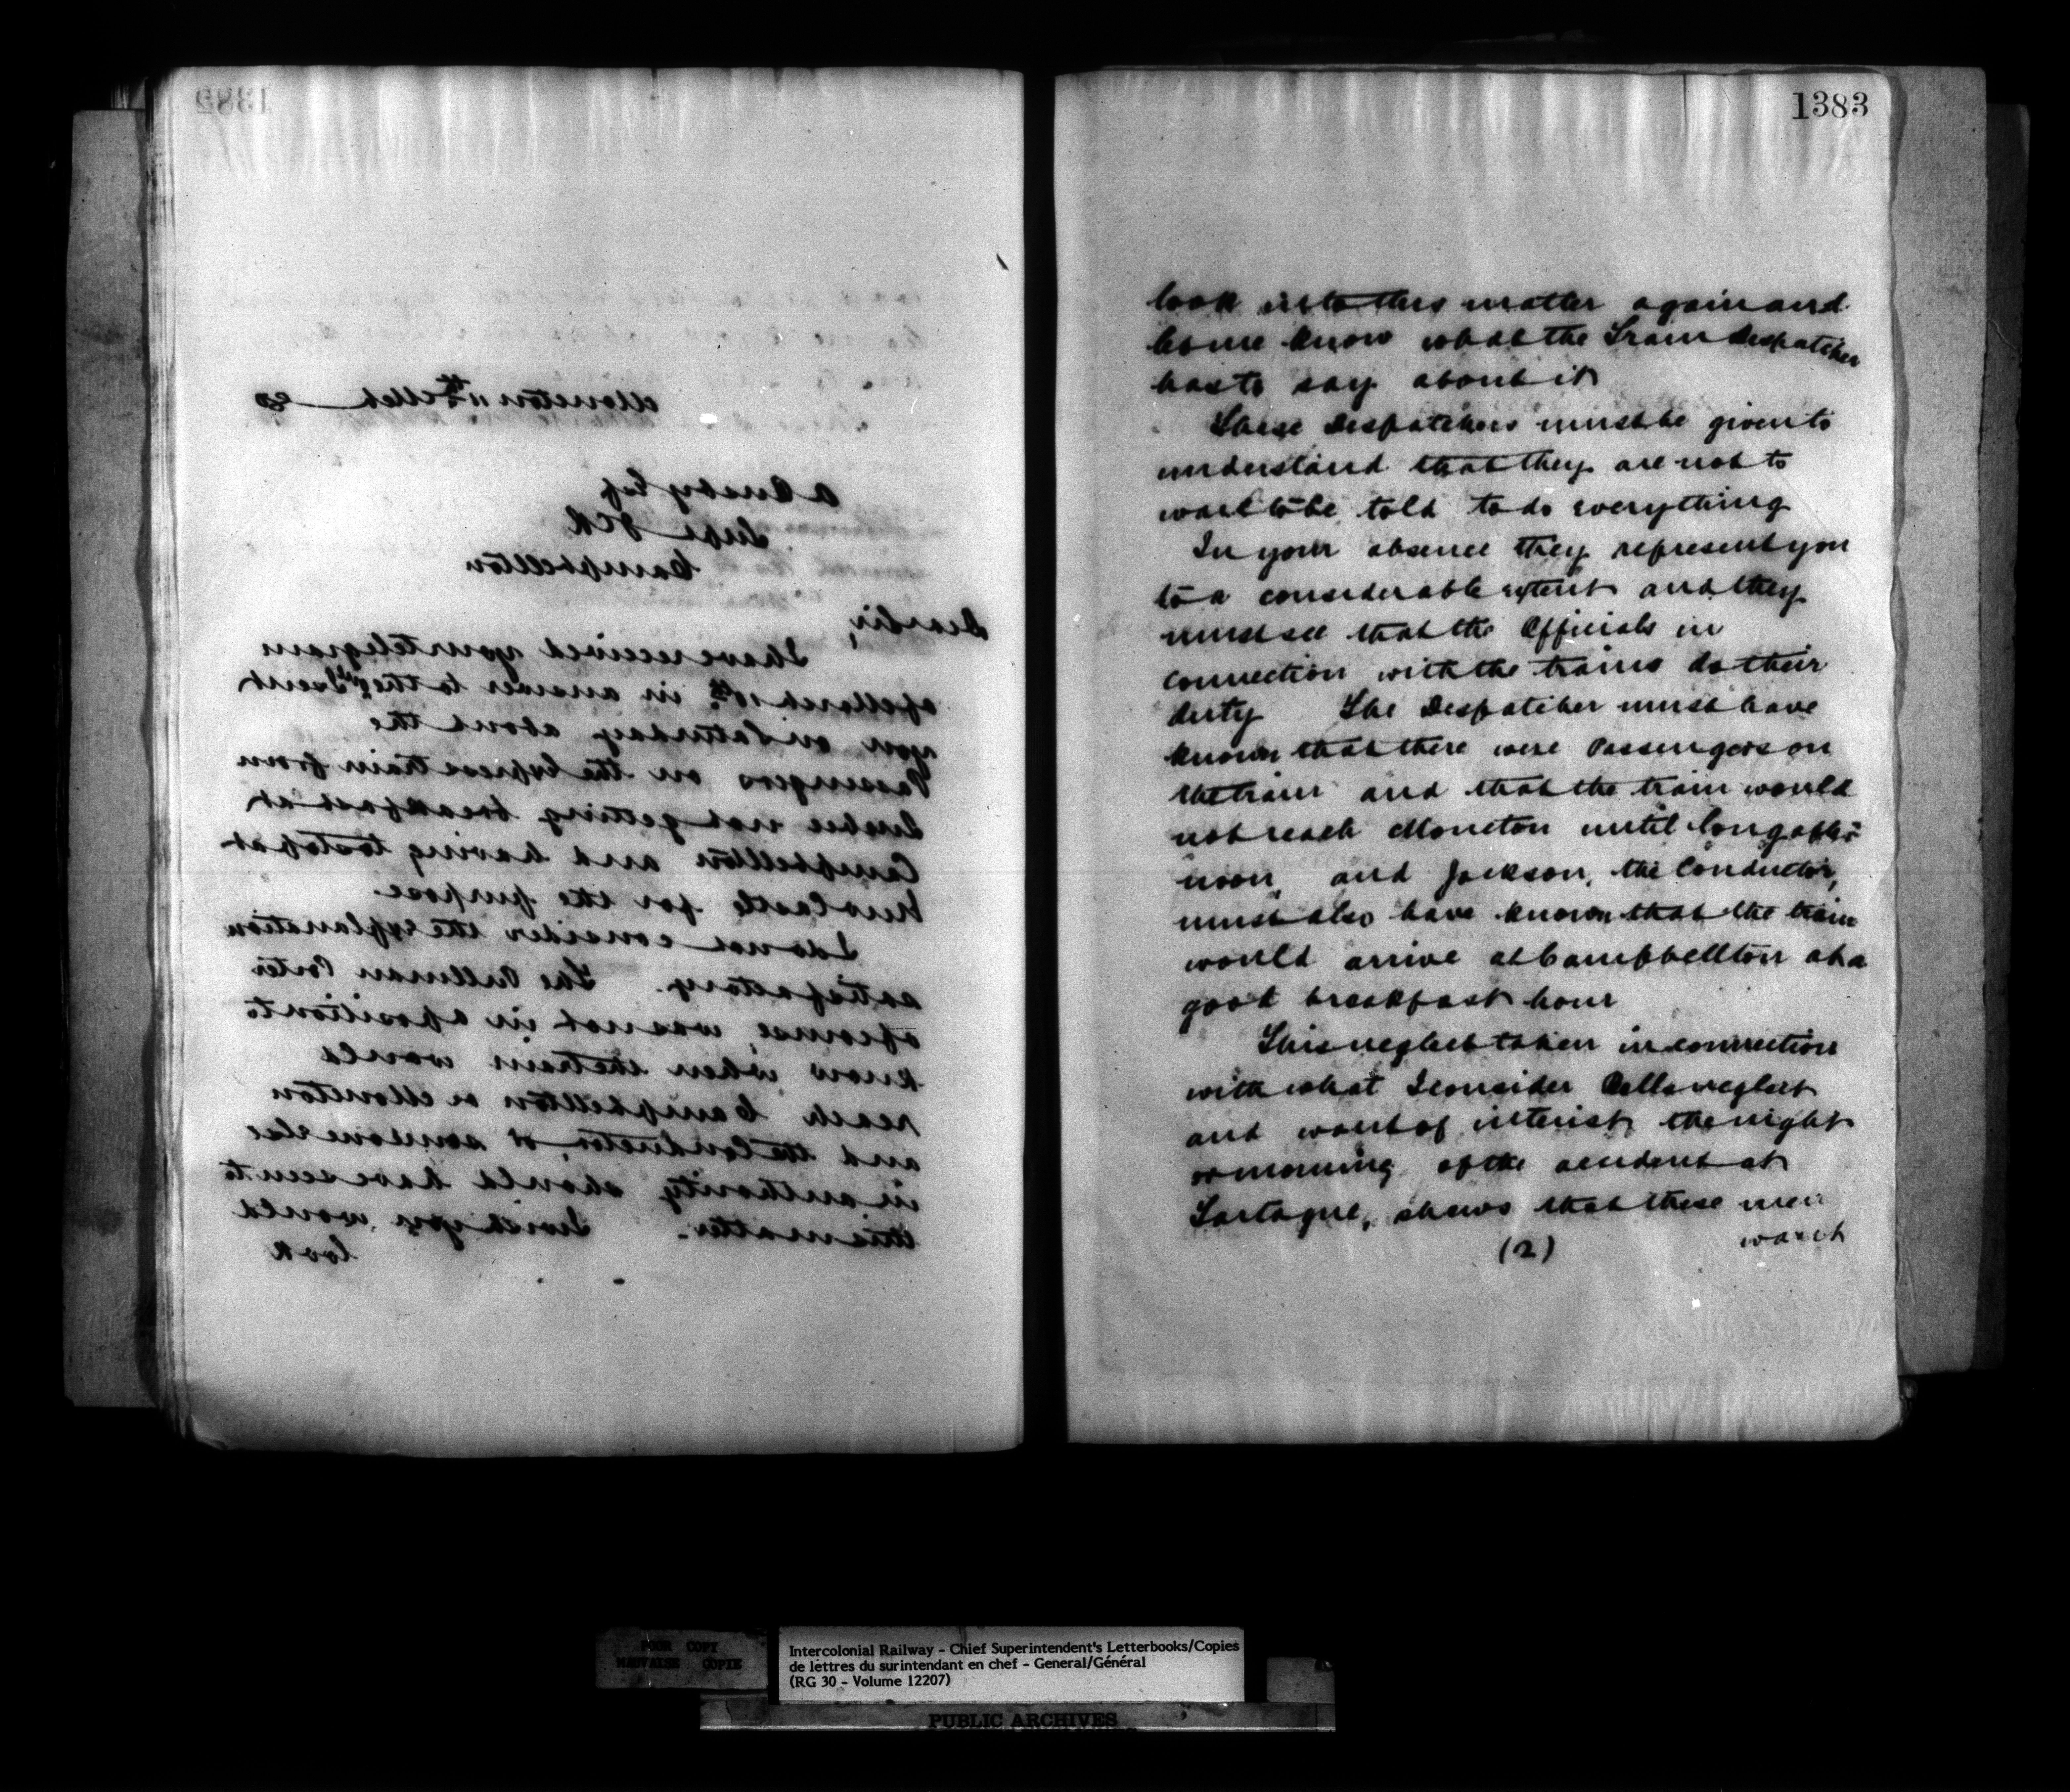 1382
Moncton 11th Mch 89
A Busby Esq
Supt ICR
Campbellton
Dear Sir,
I have received your telegram
of March 10th in answer to the one I sent
you on Saturday about the
Passengers on the Express train from
Quebec not getting breakfast at
Campbellton and having to stop at
New Castle for the purpose.
I do not consider the explanation
satisfactory. The Pullman Porter
of course, was not in a position to
know when the train would
reach Campbellton or Moncton
and the Conductor, or someone else
in authority should have seen to
this matter. I wish you would
look
1383
look into this matter again and
let me know what the Train Despatcher
has to say about it
These Despatchers must be given to
understand that they are not to
wait to be told to do everything
In your absence they represent you
to a considerable extent and they
must see that the Officials in
connection with the trains do their
duty The Despatcher must have
known that there were Passengers on
the train and that the train would
not reach Moncton until long after
noon, and Jackson, the Conductor,
must also have known that the train
would arrive at Campbellton at a
good breakfast hour
This neglect taken in connection
with what I consider neglect
and want of interest, the night
or morning of the accident at
Tartague, shows that these men
(2)
POOR COPY
MAUVAISE COPIE
Intercolonial Railway - Chief Superintendent's Letterbooks/Copies
de lettres du surintendant en chef - General/Général
(RG 30 - Volume 12207)
PUBLIC ARCHIVES